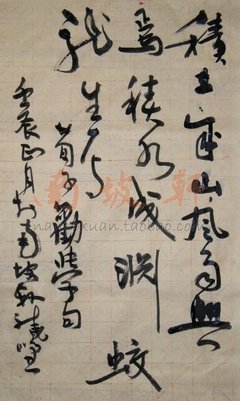 積土成山風雨興
焉積水成淵蛟
龍生焉
荀子勸學句
壬辰正月於南坡軒曉鳴
南坡軒
nanpoxuan.taobao.com